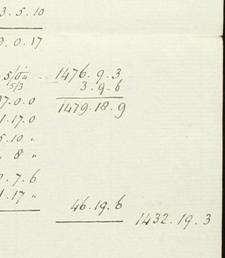 3.5.10
9.0.17
5/0 " .. 1476.9.3
5/3 3.9.6
7.0.0 1479.18.9
1.17.0
5.10 "
" 8 "
.7.6
1.17 " 46.19.6
1432.19.3